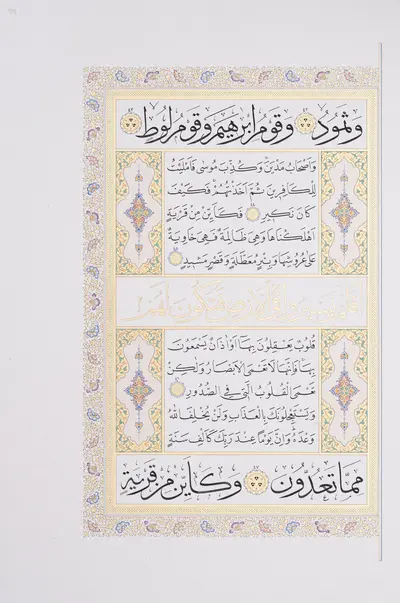 وَثَمُودُ ۝ وَقَوْمُ اِبْرٰهِيمَ وَقَوْمُ لُوطٍ ۝
وَاَصْحَابُ مَدْيَنَ وَكُذِّبَ مُوسٰى فَاَمْلَيْتُ
لِلْكَافِرِينَ ثُمَّ اَخَذْتُهُمْ فَكَيْفَ
كَانَ نَكِيرِ ۝ فَكَاَيِّنْ مِنْ قَرْيَةٍ
اَهْلَكْنَاهَا وَهِيَ ظَالِمَةٌ فَهِيَ خَاوِيَةٌ
عَلٰى عُرُوشِهَا وَبِئْرٍ مُعَطَّلَةٍ وَقَصْرٍ مَشِيدٍ ۝
قُلُوبٌ يَعْقِلُونَ بِهَا اَوْ اٰذَانٌ يَسْمَعُونَ
بِهَا فَاِنَّهَا لَا تَعْمَى الْاَبْصَارُ وَلٰكِنْ
تَعْمَى الْقُلُوبُ الَّتِى فِى الصُّدُورِ ۝
وَيَسْتَعْجِلُونَكَ بِالْعَذَابِ وَلَنْ يُخْلِفَ اللهُ
وَعْدَهُ وَاِنَّ يَوْمًا عِنْدَ رَبِّكَ كَاَلْفِ سَنَةٍ
مِمَّا تَعُدُّونَ ۝ وَكَاَيِّنْ مِنْ قَرْيَةٍ